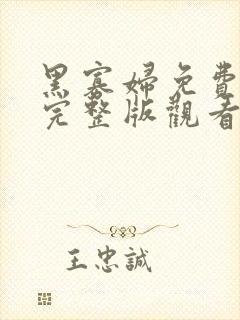 黑寡婦免費
完整版觀看
王忠誠